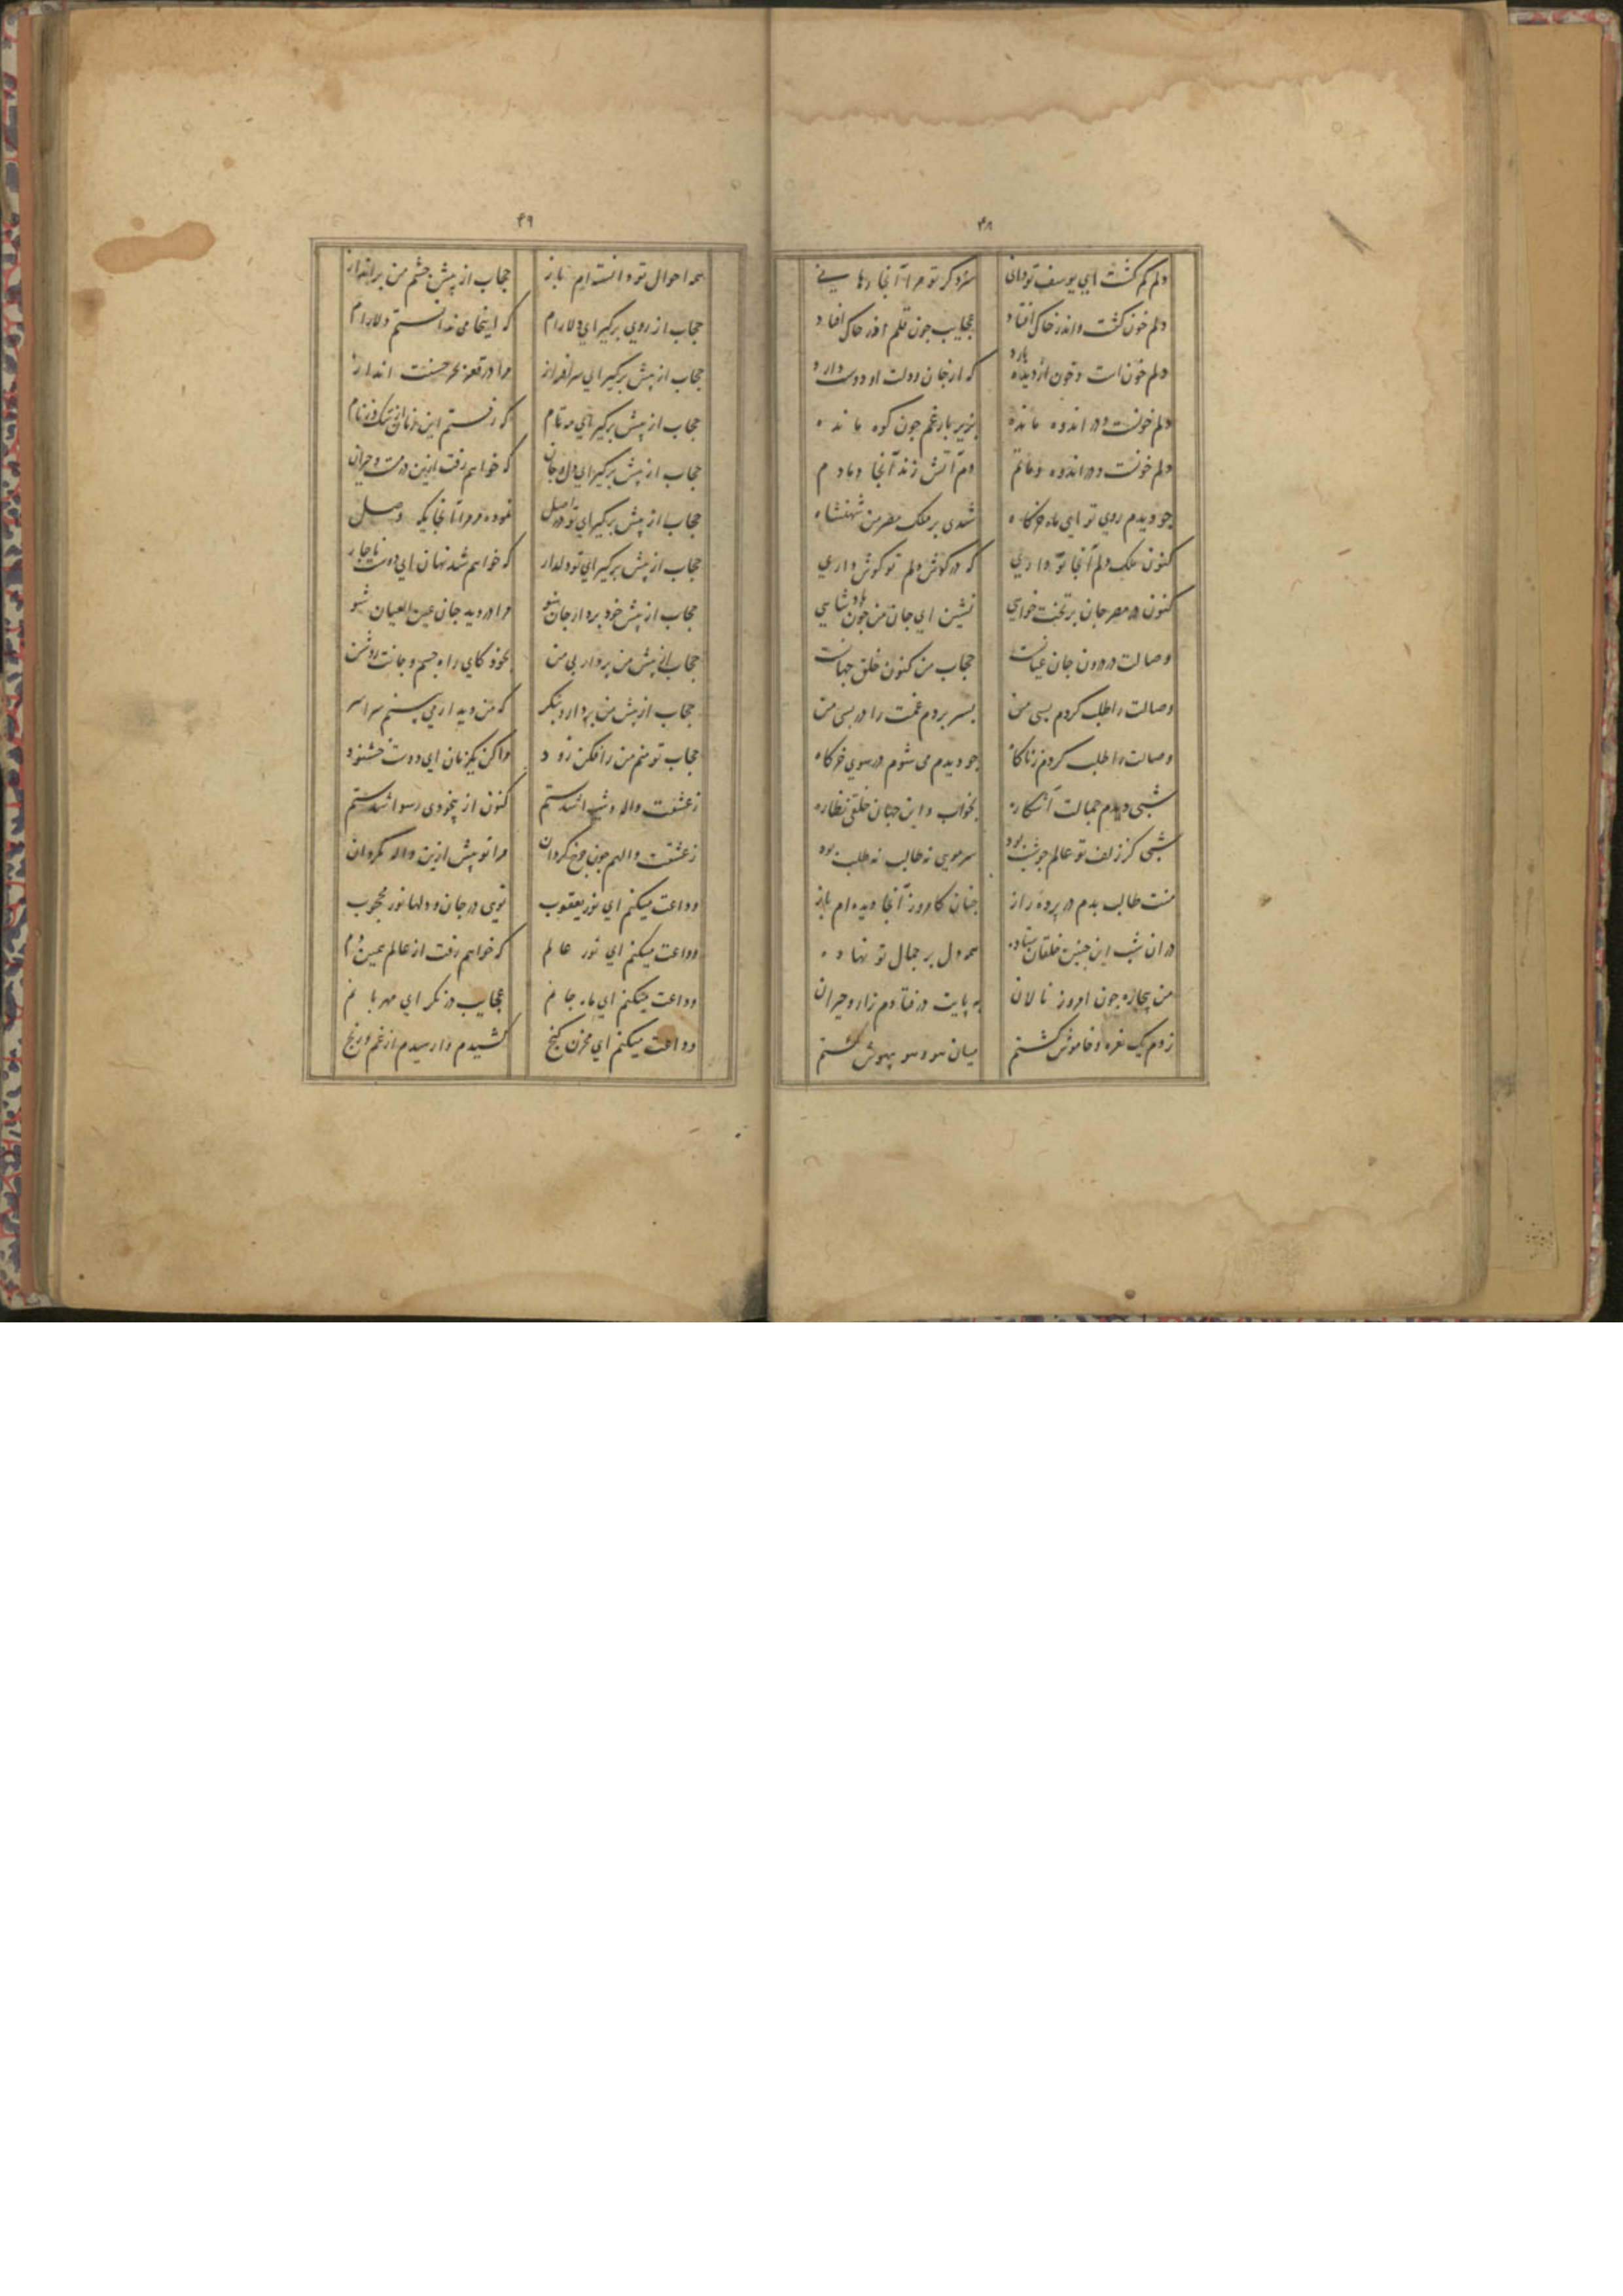 ۴۸
دلم کم کشت ای یوسف تو دانی سزد کر تو مرا آنجا رهانی
دلم خون کشت و اندر خاک افتاد عجایب چون قلم اندر خاک افتاد
دلم خون است و خون از دیده بارد که از جان دولت او دوست دارد
دلم خونست و در اندوه مانده بزیر بار غم چون کوه مانده
دلم خونست و در اندوه و ماتم دم آتش زند آنجا دمادم
چو دیدم روی تو ای ماه خرکاه شدی بر ملک مصر من شهنشاه
کنون ملک دلم آنجا تو داری که در کوش دلم تو کوش داری
کنون در مصر جان بر تخت خواهی نشین ای جان من چون پادشاهی
وصالت در درون جان عیانست حجاب من کنون خلق جهانست
وصالت را طلب کردم بسی من بسر بردم غمت را در بسی من
وصالت را طلب کردم ز ناکاه چو دیدم می شوم در سوی خرکاه
شبی دیدم جمالت آشکاره بخواب و این جهان خلقی نظاره
شبی کز زلف تو عالم چو شب بود سر مویی نه طالب نه طلب بود
منت طالب بدم در پرده راز چنان کامروز آنجا دیده ام باز
در آن شب این چنین خلقان ستاده همه دل بر جمال تو نهاده
من بیچاره چون امروز نالان به پایت در فتادم زار و حیران
زدم یک نعره و خاموش کشتم میان بیهوش کشتم
۴۹
همه احوال تو دانسته ام باز حجاب از پیش چشم من برانداز
حجاب از روی برکیر ای دلارام که اینجا می ندانستم دلارام
حجاب از پیش برکیر ای سرافراز مرا در قعر بحر حسنت انداز
حجاب از پیش برکیر ای مه تمام که رفستم این زمان از ننک وز نام
حجاب از پیش برکیر ای دل و جان که خواهم رفت ازین در مست و حیران
حجاب از پیش برکیر ای تو در اصل نموده مر مرا آنجایکه وصل
حجاب از پیش برکیر ای تو دلدار که خواهم شد نهان ای دوست ناچار
حجاب از پیش خود بردار جان شو مرا در دید جان عین العیان شو
حجاب از پیش من بردار بی من بخود کای راه جسم و جانت روشن
حجاب از پیش من بردار و بنکر که من دیدار می بینم سراسر
حجاب تو منم من را فکن زود مرا کن یکزمان ای دوست خشنود
ز عشقت واله و شیدا شدستم کنون از بیخودی رسوا شدستم
ز عشقت والهم چون چرخ کردان مرا تو بیش ازین واله مکردان
وداعت میکنم ای نور یعقوب تویی در جان و دلها نور محبوب
وداعت میکنم ای نور عالم که خواهم رفت از عالم همین دم
وداعت میکنم ای ماه جانم عجایب در نکر ای مهربانم
وداعت میکنم ای مخزن کنج کشیدم وارسیدم از غم و رنج